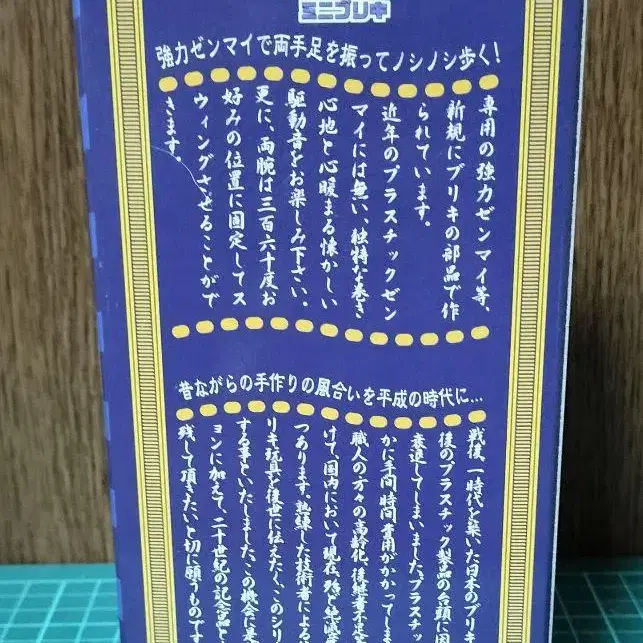 ミニブリキ
強力ゼンマイで両手足を振ってノシノシ歩く!
専用の強力ゼンマイ等、
新規にブリキの部品で作
られています。
近年のプラスチックゼン
マイには無い、独特な巻き
心地と心暖まる懐かしい
駆動音をお楽しみ下さい。
更に、両腕は三百六十度お
好みの位置に固定してス
ウィングさせることがで
きます。
昔ながらの手作りの風合いを平成の時代に...
戦後、一時代を築いた日本のブリキ
後のプラスチック製品の台頭に因
衰退してしまいました。プラスチッ
かに手間、時間、費用がかかってしま
職人の方々の高齢化、後継者不足
けて、国内において現在、
つあります。熟練した技術者による
リキ玩具を後世に伝えたく、このシリ
する事といたしました。この機会に是
ョンに加えて、二十世紀の記念品と
残して頂きたいと切に願うものです